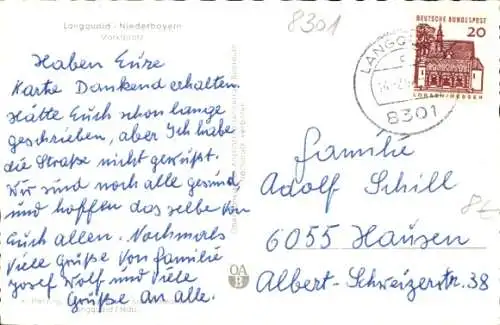 Langquaid - Niederbayern
Marktplatz
Haben Eure
Karte Dankend erhalten.
Hätte Euch schon lange
geschrieben, aber Ich habe
die Straße nicht gewußt.
Wir sind noch alle gesund,
und hoffen das selbe von
Euch allen. Nochmals
viele Grüße von familie
Josef Wolf und viele
Grüße an alle.
Langquaid / Ndb.
8301
DEUTSCHE BUNDESPOST
20
LORSCH/HESSEN
LANGQ
8301
familie
Adolf Schill
6055 Hausen
Albert-Schweizerstr. 38
OA
B